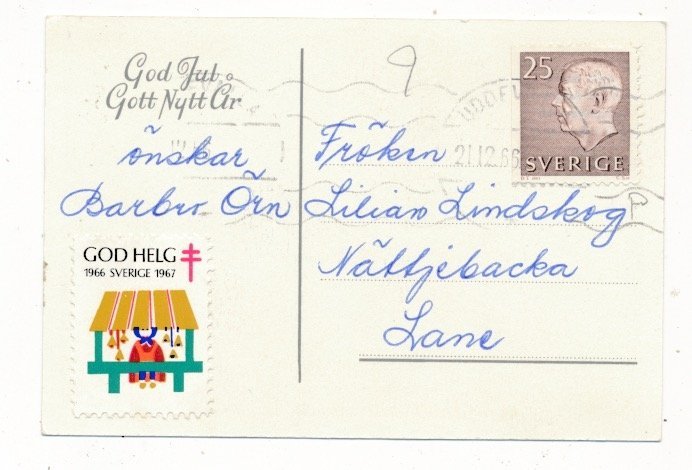 God Jul o
Gott Nytt År
önskar
Barbro Örn
GOD HELG
1966 SVERIGE 1967
9
25
SVERIGE
21.12.66
Fröken
Lilian Lindskog
Nättjebacka
Lane
P